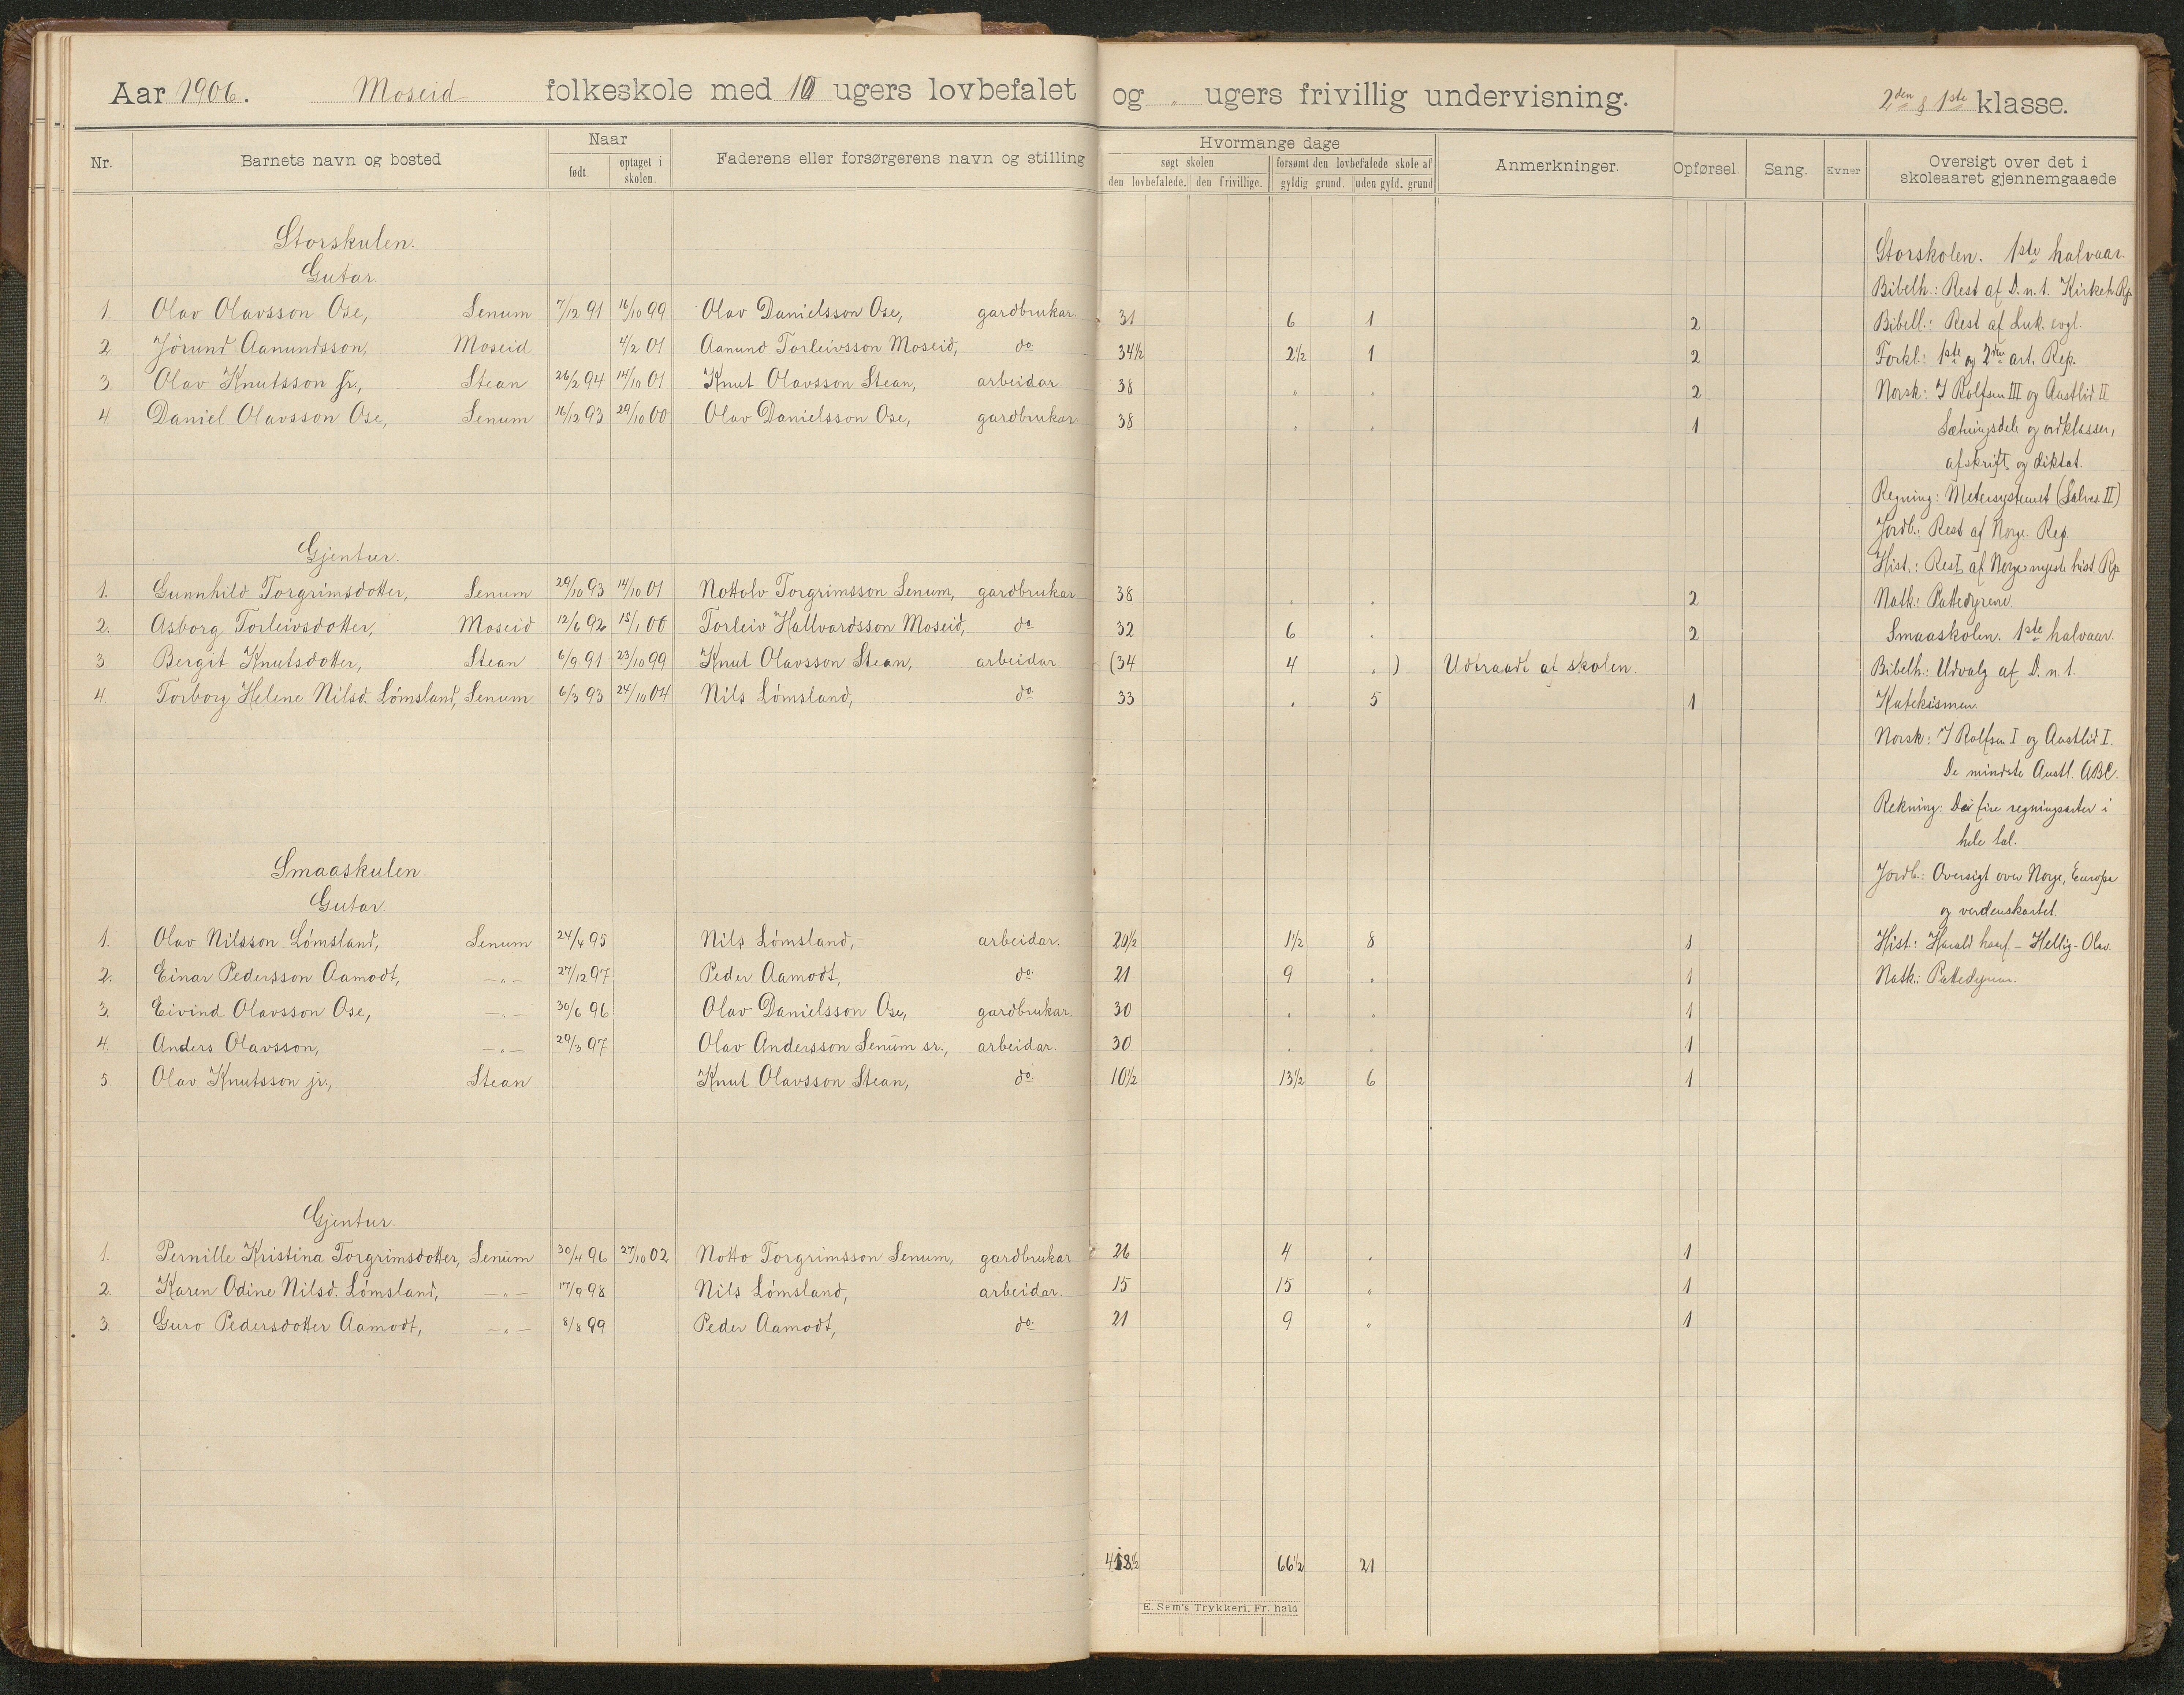 Aar 1906. Moseid folkeskole med 10 ugers lovbefalet og " ugers frivillig undervisning. 2den & 1ste klasse.
Nr. Barnets navn og bosted Naar født optaget i skolen. Faderens eller forsørgerens navn og stilling Hvormange dage søgt skolen den lovbefalede. den frivillige. forsømt den lovbefalede skole af gyldig grund. uden gyld. grund Anmerkninger. Opførsel. Sang. Evner Oversigt over det i skoleaaret gjennemgaaede
Storskulen.
Gutar.
1. Olav Olavsson Ose, Senum 7/12 91 16/10 99 Olav Danielsson Ose, gardbrukar. 31 6 1 2
2. Jörund Aanundsson, Moseid 4/2 01 Aanund Torleivsson Moseid, do 34½ 2½ 1 2
3. Olav Knutsson fr., Stean 26/2 94 14/10 01 Knut Olavsson Stean, arbeidar. 38 " " 2
4. Daniel Olavsson Ose, Senum 16/12 93 29/10 00 Olav Danielsson Ose, gardbrukar. 38 " " 1
Gjentur.
1. Gunnhild Torgrimsdotter, Senum 29/10 93 14/10 01 Nottolv Torgrimsson Senum, gardbrukar. 38 " " 2
2. Asborg Torleivsdotter, Moseid 12/6 92 15/1 00 Torleiv Hallvardsson Moseid, do 32 6 " 2
3. Bergit Knutsdotter, Stean 6/9 91 23/10 99 Knut Olavsson Stean, arbeidar. (34 4 " ) Udtraadt af skolen.
4. Torborg Helene Nilsd. Lömsland, Senum. 6/3 93 24/10 04 Nils Lömsland, do 33 " 5 1
Smaaskulen.
Gutar.
1. Olav Nilsson Lömsland, Senum 24/4 95 Nils Lömsland, arbeidar. 20½ 1½ 8 1
2. Einar Pedersson Aamodt, —"— 27/12 97 Peder Aamodt, do. 21 9 " 1
3. Eivind Olavsson Ose, —"— 30/6 96 Olav Danielsson Ose, gardbrukar. 30 " " 1
4. Anders Olavsson, —"— 29/3 97 Olav Andersson Senum sr., arbeidar. 30 " " 1
5. Olav Knutsson jr., Stean Knut Olavsson Stean, do. 10½ 13½ 6 1
Gjentur.
1. Pernille Kristina Torgrimsdotter, Senum 30/4 96 27/10 02 Notto Torgrimsson Senum, gardbrukar 26 4 " 1
2. Karen Odine Nilsd. Lömsland, —"— 17/9 98 Nils Lömsland, arbeidar. 15 15 " 1
3. Guro Pedersdotter Aamodt, —"— 8/8 99 Peder Aamodt, do. 21 9 " 1
66½ 21
E. Sem's Trykkeri, Fr. hald
Storskolen. 1ste halvaar.
Bibelh.: Rest af D.n.t. Kirkeh. Rp.
Bibell.: Rest af Luk. evgl.
Forkl.: 1ste og 2den art. Rep.
Norsk: I Rolfsen III og Austlid II
Sætningsdele og ordklasser,
afskrift og diktat.
Regning: Metersystemet (Salves. II)
Jordb.: Rest af Norge. Rep.
Hist.: Rest af Norges nyeste hist. Rp
Natk.: Pattedyrene.
Smaaskolen. 1ste halvaar.
Bibelh.: Udvalg af D.n.t.
Katekismen.
Norsk: I Rolfsen I og Austlid I.
De mindste Austl. ABC.
Rekning: De fire regningsarter i
hele tal.
Jordb.: Oversigt over Norge, Europa
og verdenskartet.
Hist.: Harald haarf. - Hellig-Olav.
Natk.: Pattedyrene.